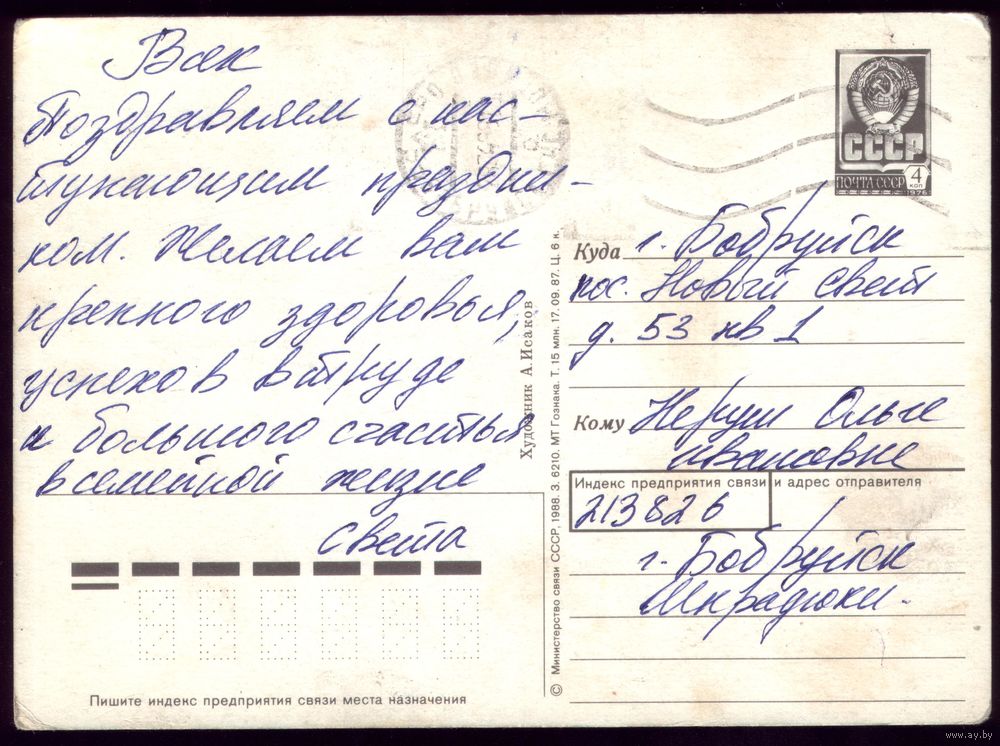 Вас
Поздравляем с нас-
тупающим праздни-
ком. Желаем вам
крепкого здоровья,
успехов в труде
и большого счастья
в семейной жизне
Света
Пишите индекс предприятия связи места назначения
© Министерство связи СССР, 1988. З. 6210. МТ Гознака. Т. 15 млн. 17. 09. 87. Ц. 6 к.
Художник А.Исаков
СССР
ПОЧТА СССР
4
КОП
1976
Куда г. Бобруйск
пос. Новый Свет
д. 53 кв 1
Кому Неруш Ольге
Ивановне
Индекс предприятия связи и адрес отправителя
213826
г. Бобруйск
www.ay.by